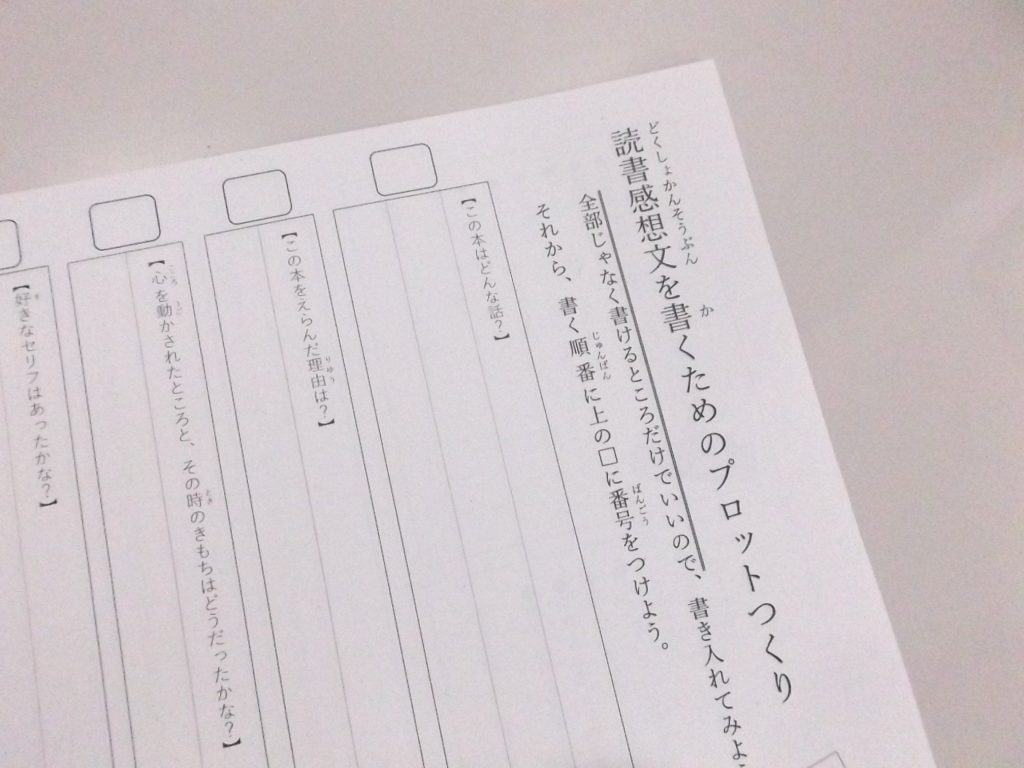 読書感想文を書くためのプロットつくり
全部じゃなく書けるところだけでいいので、書き入れてみよ
それから、書く順番に上の□に番号をつけよう。
【この本はどんな話?】
【この本をえらんだ理由は?】
【心を動かされたところと、その時のきもちはどうだったかな?】
【好きなセリフはあったかな?】